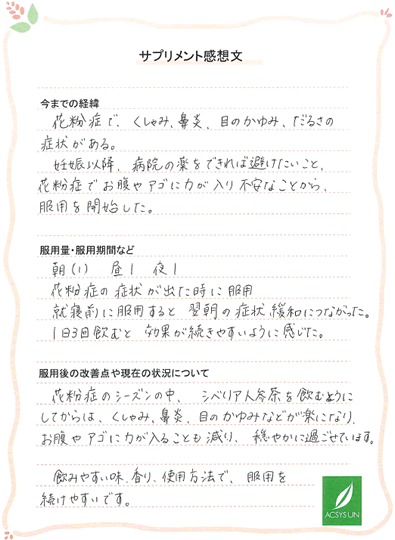 サプリメント感想文
今までの経緯
花粉症で、くしゃみ、鼻炎、目のかゆみ、だるさの
症状がある。
妊娠以降、病院の薬をできれば避けたいこと、
花粉症でお腹やアゴに力が入り不安なことから、
服用を開始した。
服用量・服用期間など
朝(1) 昼1 夜1
花粉症の症状が出た時に服用
就寝前に服用すると翌朝の症状緩和につながった。
1日3回飲むと効果が続きやすいように感じた。
服用後の改善点や現在の状況について
花粉症のシーズンの中、シベリア人参茶を飲むように
してからは、くしゃみ、鼻炎、目のかゆみなどが楽になり、
お腹やアゴに力が入ることも減り、穏やかに過ごせています。
飲みやすい味、香り、使用方法で、服用を
続けやすいです。
ACSYS UN